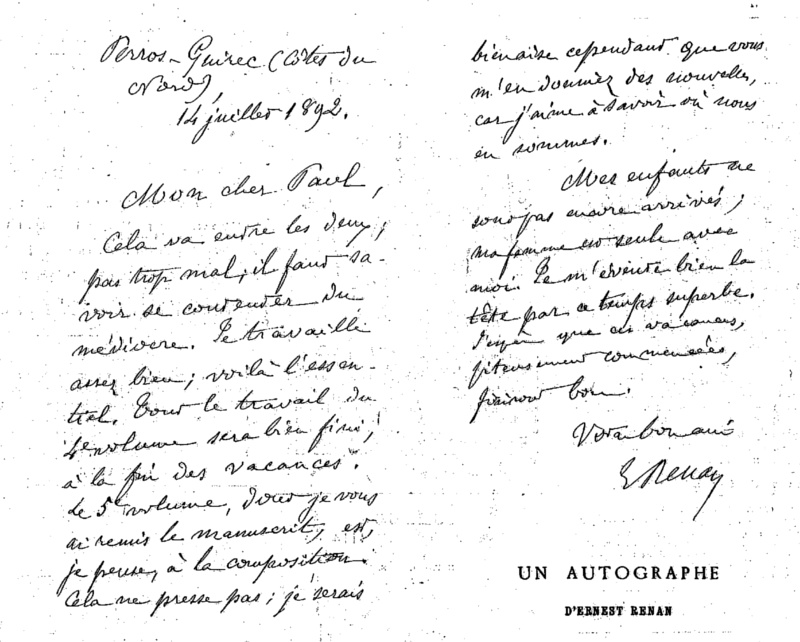 Perros-Guirec (Côtes du
Nord),
14 juillet 1892.
Mon cher Paul,
Cela va entre les deux,
pas trop mal; il faut sa-
voir se contenter du
médiocre. Je travaille
assez bien; voilà l'essen-
tiel. Tout le travail du
4e volume sera bien fini,
à la fin des vacances.
Le 5e volume, dont je vous
ai remis le manuscrit, est,
je pense, à la composition.
Cela ne presse pas; je serais
bienaise cependant que vous
m'en donniez des nouvelles,
car j'aime à savoir où nous
en sommes.
Mes enfants ne
sont pas encore arrivés;
ma femme est seule avec
moi. Je m'évente bien la
tête par ce temps superbe.
J'espère que ces vacances,
piteusement commencées,
finiront bien.
Votre bon ami
E Renan
UN AUTOGRAPHE
D'ERNEST RENAN